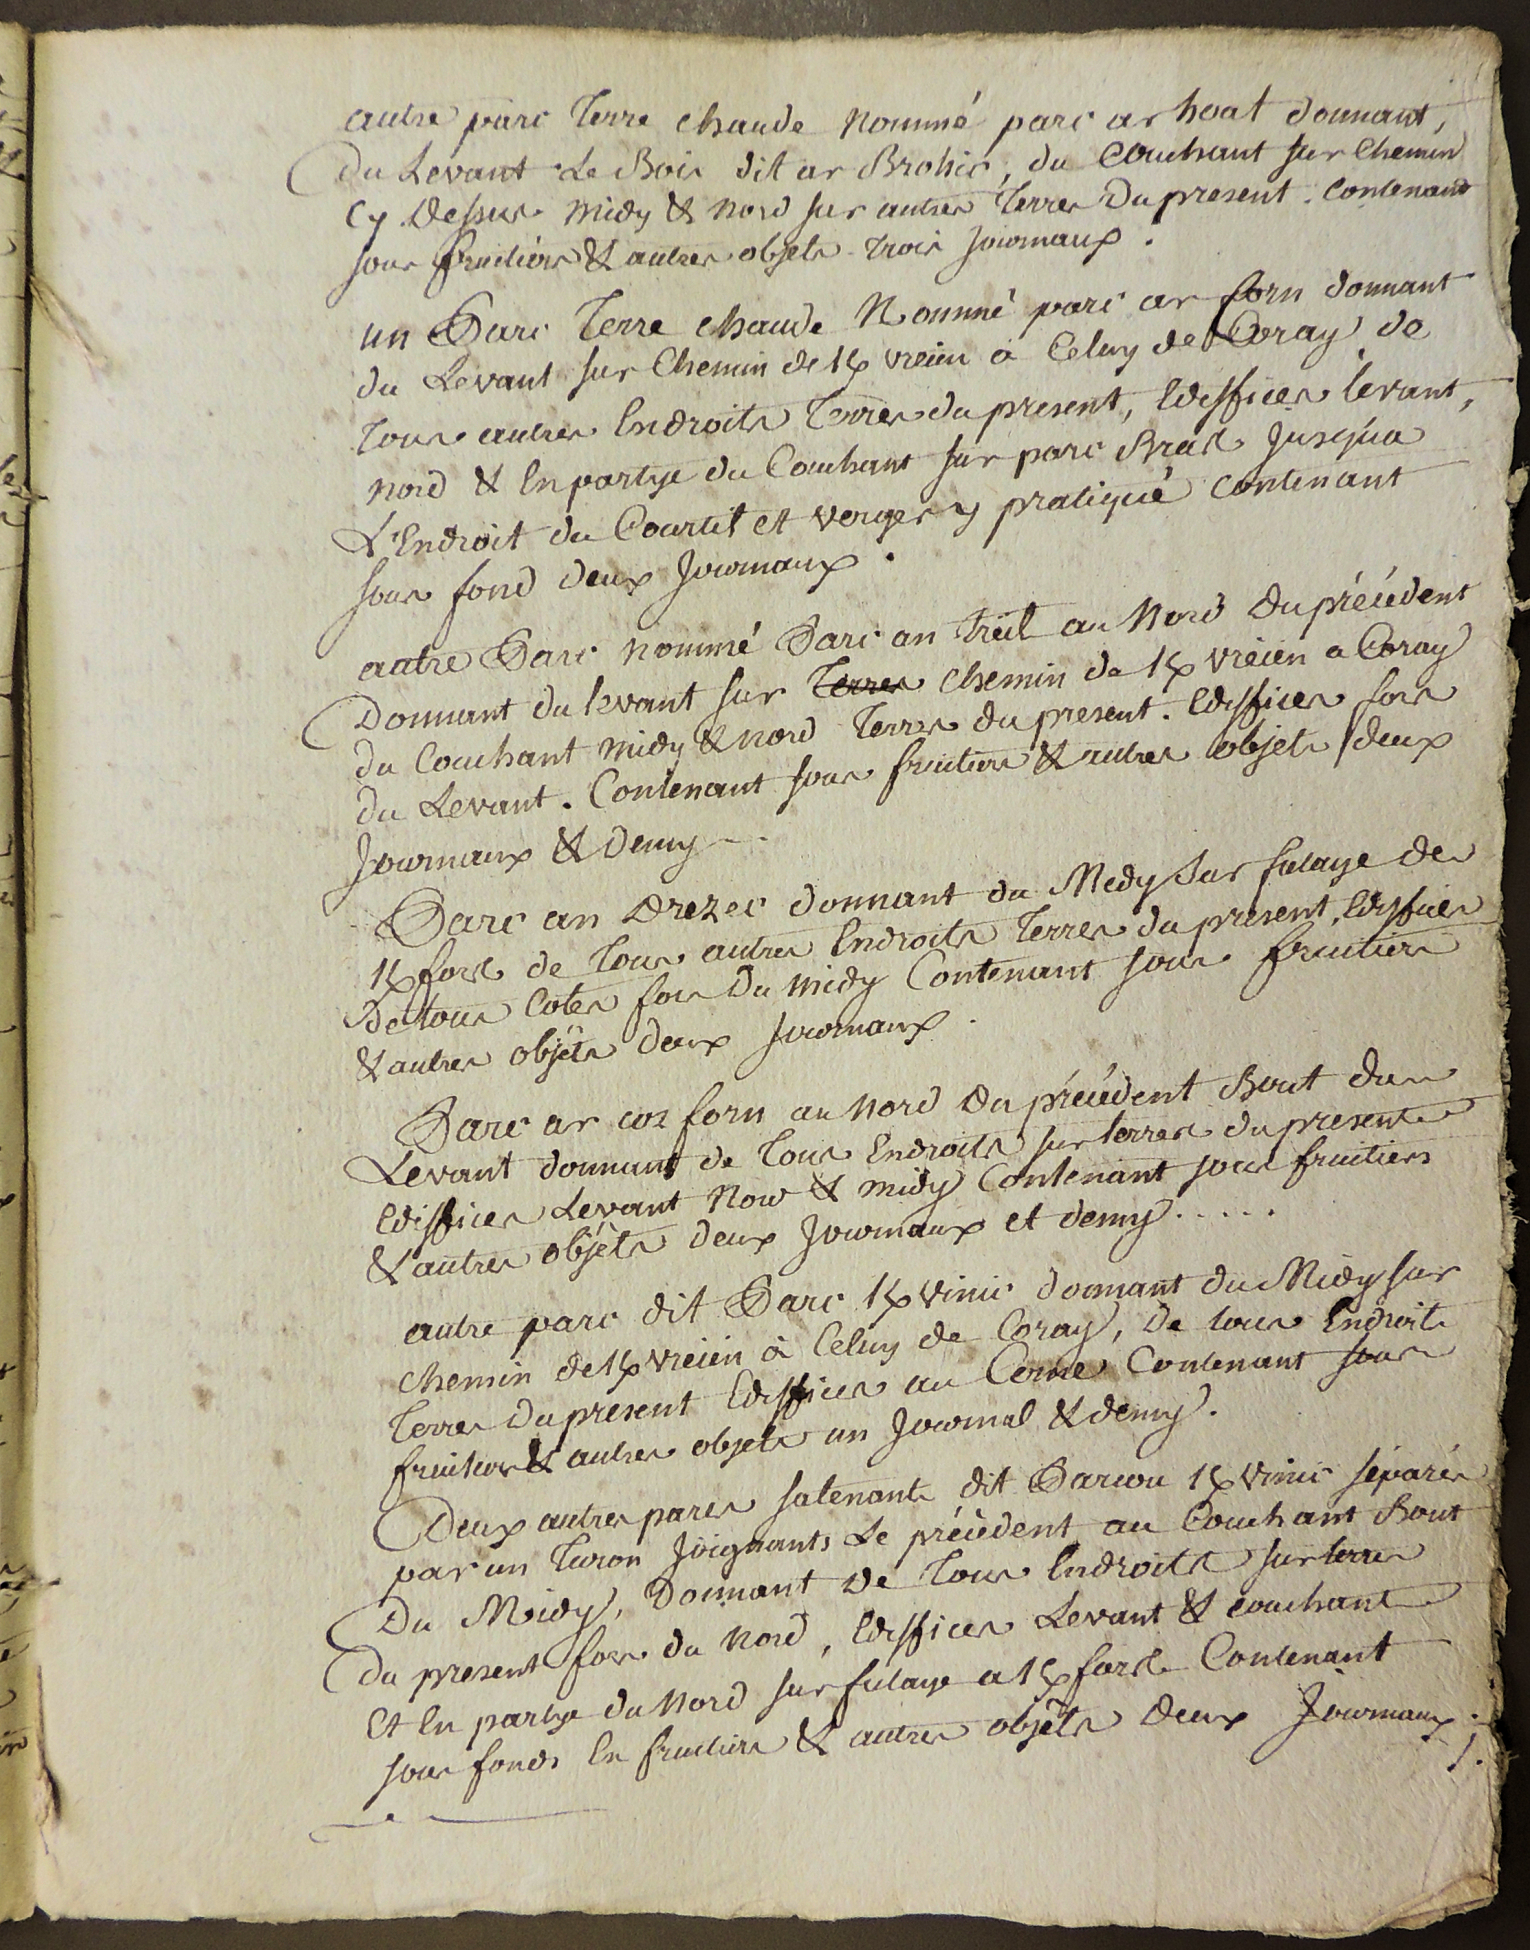 autre parc Terre chaude Nommé parc ar hoat donnant,
Du Levant Le Bois dit ar Brohic, du Couchant sur Chemin
Cy Dessus midy & nord sur autres Terres Du present. Contenant
sous fruitiers & autres objets trois Journaux.
un Parc Terre chaude Nommé parc ar forn donnant
du Levant sur Chemin de Kvreien à Celuy de Coray de
Tous autres Endroits Terres du present, Ediffices levant,
nord & En partye du Couchant sur parc Bras Jusqúa
L'Endroit du Courtil et verger y pratiqué contenant
sous fond deux Journaux.
autre Parc nommé Parc an Treil au Nord Du précédent
Donnant du levant sur Terres chemin de Kvreien a Coray
du Couchant midy & nord Terres du present. Ediffices fors
du Levant. Contenant sous fruitiers & autres objets deux
Journaux & Demy
Parc an Drezec donnant du Medy sur futaye de
Kfors de Tous autres Endroits Terres du present, Ediffices
De tous Cotes fors Du midy Contenant sous fruitiers
& autres objets deux Journaux.
Parc ar coz forn au Nord Du précédent Bout du
Levant donnant de Tous Endroits sur terres du present
Ediffices Levant Nord & midy Contenant sous fruitiers
& autres objéts deux Journaux et demy.....
autre parc dit Parc Kvinic donnant du Midy sur
chemin de Kvreien à Celuy de Coray, De tous Endroits
Terres Du present Ediffices au Cerne Contenant sous
fruitiers & autres objets un Journal & demy.
Deux autres parcs s'atenants dit Parcou Kvinic séparés
par un Turon Joignants Le précédent au Couchant Bout
Du Midy, Donnant de Tous Endroits sur terres
Du present fors du Nord, Ediffices Levant & couchant
Et En partye du Nord sur futaye a Kfors Contenant
sous fonds En fruitiers & autres objéts Deux Journaux.